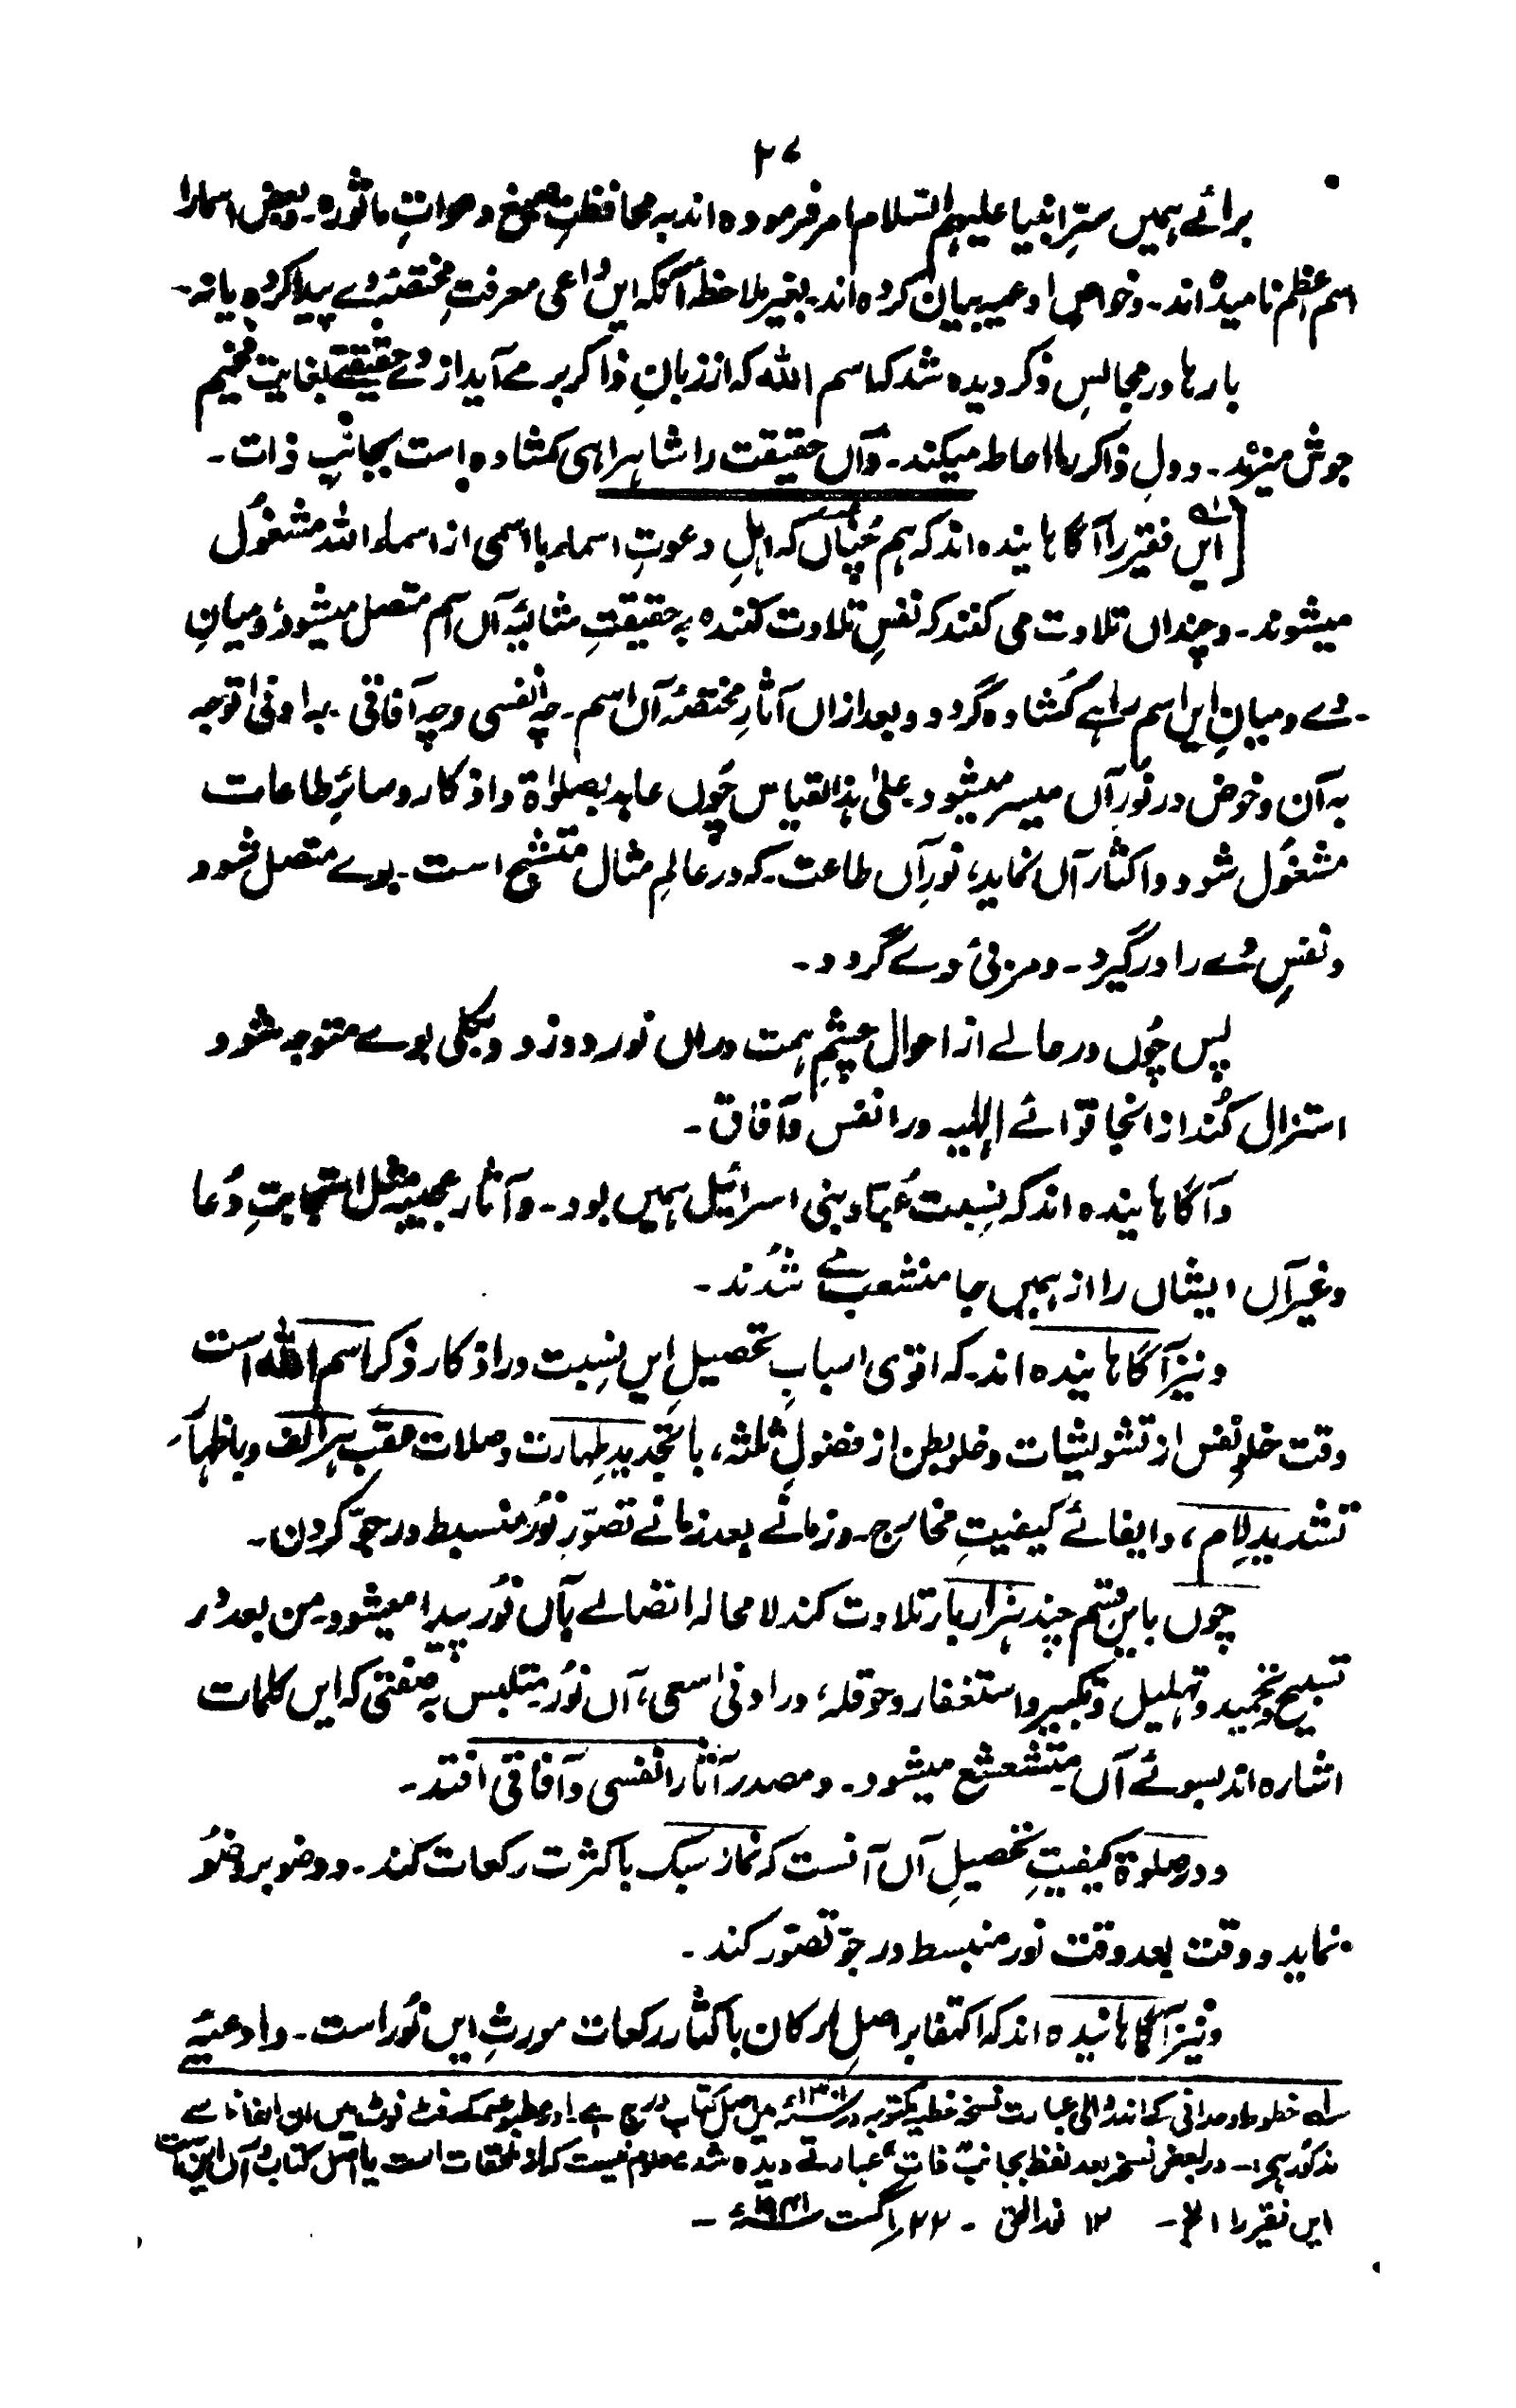 ۲۷
برائے ہمیں سرِّ انبیا علیہم السلام امر فرمودہ اند بہ محافظتِ صیغ و صلواتِ ماثورہ۔ وبعض اسمارا
اسم اعظم نامیدہ اند۔ وخواص ادعیہ بیان کردہ اند۔ بغیر ملاحظۂ آنکہ ایں داعی معرفتِ مختصہ بوے پیدا کردہ یا نہ۔
بارہا در مجالسِ ذکر دیدہ شد کہ اسم اللہ کہ از زبانِ ذاکر برمے آید از وے حقیقتے بغایت فخیم
جوش میزند۔ ودلِ ذاکر را احاطہ میکند۔ وآں حقیقت را شاہراہی کشادہ است بجانبِ ذات۔
[ایں فقیر را آگاہانیدہ اند کہ ہم چُناں کہ اہلِ دعوتِ اسماء با اسمی از اسماء اللہ مشغُول
میشوند۔ وچنداں تلاوت می کنند کہ نفسِ تلاوت کنندہ بہ حقیقتِ مثالیّہ آں اسم متصل میشود ومیانِ
وے ومیانِ ایں اسم راہے کُشادہ گردد وبعد ازاں آثارِ مختصّۂ آں اسم۔ چہ انفسی وچہ آفاقی۔ بہ ادنیٰ توجہ
بہ آن وخوض در نورِ آں میسر میشود۔ علیٰ ہذا القیاس چُوں عابد بصلوٰۃ واذکار وسائرِ طاعات
مشغُول شود واکثار آں نماید، نورِ آں طاعت۔ کہ در عالمِ مثال متشبّح است۔ بوے متصل شود
ونفسِ وے را درگیرد۔ ومربیٔ وے گردد۔
پس چُوں در حالے از احوال چشمِ ہمت دراں نور دوزد وبکلی بوے متوجہ شود
استنزال کُند از انجا قوائے الٰہیہ در انفس وآفاق۔
وآگاہانیدہ اند کہ نسِبت عُبّاد بنی اسرائیل ہمیں بود۔ وآثار عجیبہ مثل استجابتِ دُعا
وغیر آں ایشاں را از ہمیں جا منشعب مے شُدند۔
ونیز آگاہانیدہ اند۔ کہ اقوی اسبابِ تحصیلِ ایں نسِبت در اذکار ذکر اسم اللہ است
وقت خلوِ نفس از تشویشات وخلو بطن از فضولِ ثلثہ، با تجدیدِ طہارت وصلات عقب ہر الف وباظہار
تشدیدِ لام، وایفائے کیفیتِ مخارج۔ وزمانے بعد زمانے تصوّرِ نُور منبسط در جوّ کردن۔
چوں بایں قسم چند ہزار بار تلاوت کند لامحالہ اتصالے بآں نُور پیدا میشود۔ من بعد در
تسبیح وتحمید وتہلیل وتکبیر واستغفار وحوقلہ، در ادنیٰ سعی، آں نُور متلبس بہ صفتی کہ ایں کلمات
اشارہ اند بسوئے آں متشعشع میشود۔ ومصدر آثار انفسی وآفاقی افتد۔
ودر صلوۃ کیفیتِ تحصیلِ آں آنست کہ نماز سبک باکثرت رکعات کند۔ ووضو بر وضُو
نماید ووقت بعد وقت نور منبسط در جوّ تصوّر کند۔
ونیز آگاہانیدہ اند کہ اکتفا بر اصلِ ارکان باکثار رکعات مورثِ ایں نُور است۔ وادعیئے
لہ خطوط وحدانی کے اندر والی عبارت نسخہ خطیہ مکتوبہ در ۱۳۰۱ھ میں اصل کتاب میں درج ہے۔ اور مطبوعہ کے فٹ نوٹ میں ان الفاظ سے
مذکور ہے:۔ در بعض نسخہ بعد لفظ بجانبِ ذات عبارتے دیدہ شد معلوم نیست کہ از ملحقات است یا اصل کتاب وآں این است
ایں فقیر را الخ۔ ۱۲ نور الحق ۔ ۲۲/اگست ۱۹۴۱ء ۔